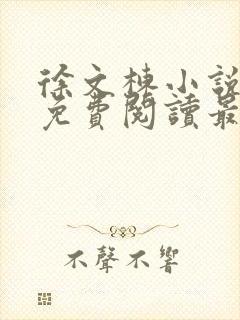 徐文棟小說
免費閱讀最
不聲不響